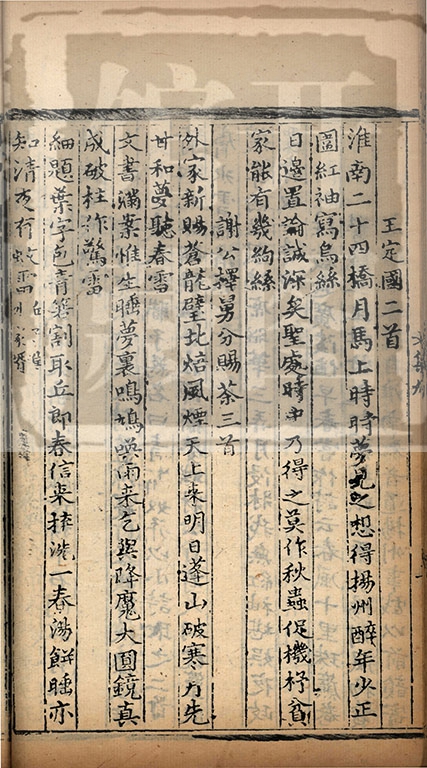 王定國二首
淮南二十四橋月馬上時時夢見之想得揚州醉年少正
圍紅袖寫烏絲
日邊置論誠深矣聖處時中乃得之莫作秋蟲促機杼貧
家能有幾絇絲
謝公擇舅分賜茶三首
外家新賜蒼龍璧北焙風煙天上來明日蓬山破寒月先
甘和夢聽春雷
文書滿案惟生睡夢裏鳴鳩喚雨來乞與降魔大圓鏡真
成破柱作驚雷
細題葉字包青箬割取丘郎春信來拚洗一春湯餅睡亦
知清夜有蚊雷